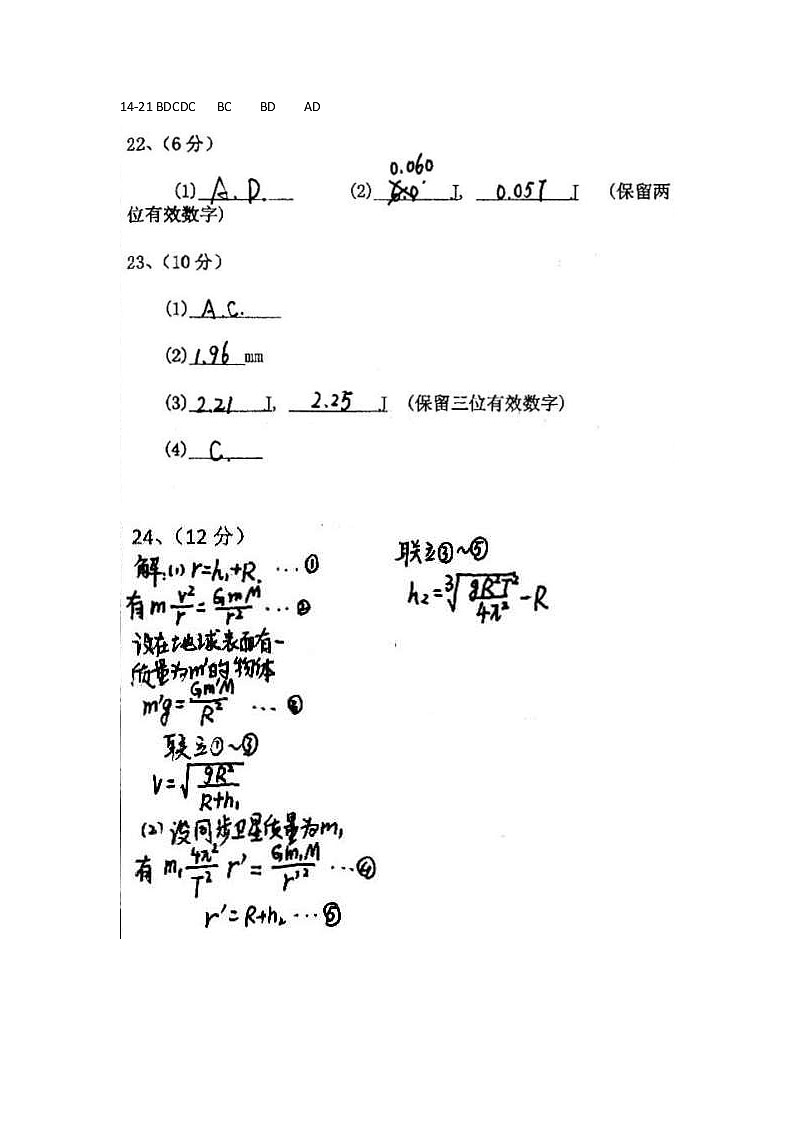 14-21 BDCDC BC BD AD
22、（6 分）
0.060
(1) A.D. (2) 6.0 J, 0.057 J （保留两
位有效数字）
23、（10 分）
(1) A.C.
(2) 1.96 mm
(3) 2.21 J, 2.25 J （保留三位有效数字）
(4) C.
24、（12 分）
解:(1) r=h₁+R. …①
有 m v²/r = GmM/r² …②
设在地球表面有一
质量为m'的物体
m'g = Gm'M/R² …③
联立①~③
V=√(gR²/(R+h₁))
(2) 设同步卫星质量为m₁
有 m₁ 4π²/T² r' = Gm₁M/r'² …④
r'=R+h₂ …⑤
联立③~⑤
h₂=³√(gR²T²/4π²) -R